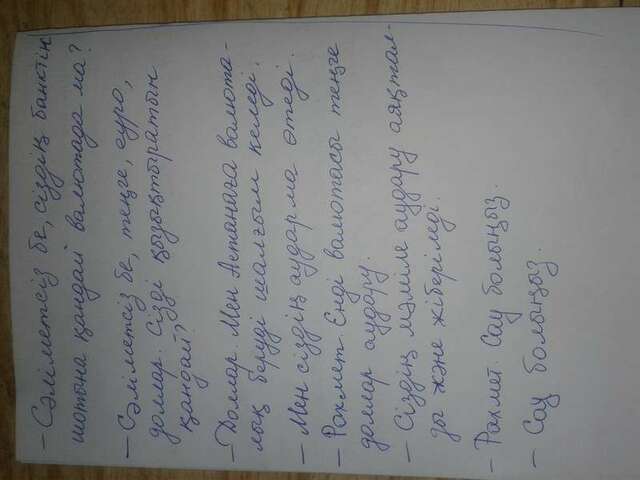 – Сәліметсіз бе, сіздің банктің
шотына қандай валютада ма?
– Сәліметсіз бе, теңге, еуро,
доллар. Сізді қызықтыратын
қандай?
– Доллар. Мен Астанаға валюта-
лық беруді шалғым келеді.
– Мен сіздің аударма өтеді.
– Рахмет. Енді валютасы теңге
доллар аудару.
– Сіздің мәміле аудару аяқтал-
ды және жіберіледі.
– Рахмет. Сау болыңыз.
– Сау болыңыз.